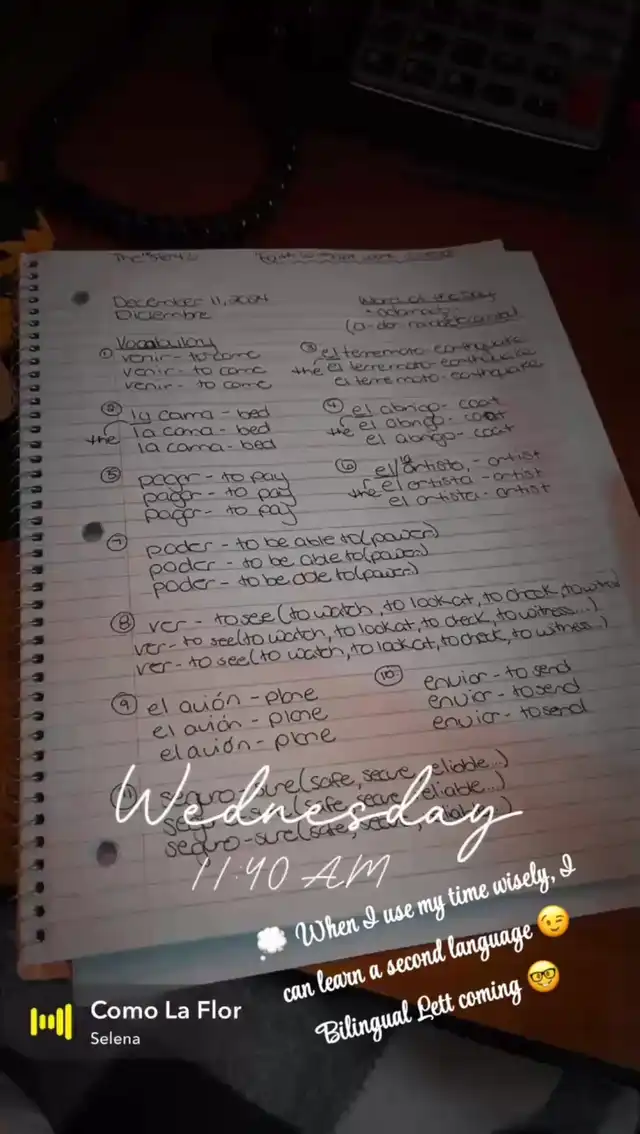 The
December 11, 2024
Diciembre
Word of the Day
Vocabulary
① venir - to come
venir - to come
venir - to come
③ el terremoto - earthquake
the el terremoto - earthquake
el terremoto - earthquake
② la cama - bed
the la cama - bed
la cama - bed
④ el abrigo - coat
the el abrigo - coat
el abrigo - coat
⑤ pagar - to pay
pagar - to pay
pagar - to pay
⑥ el/la artista, - artist
the el artista - artist
el artista - artist
⑦ poder - to be able to (power)
poder - to be able to (power)
poder - to be able to (power)
⑧ ver - to see (to watch, to look at, to check, to
ver - to see (to watch, to look at, to check, to witness...)
ver - to see (to watch, to look at, to check, to witness..)
⑨ el avión - plane
el avión - plane
el avión - plane
⑩ enviar - to send
enviar - to send
enviar - to send
⑪ seguro - sure (safe, secure, reliable...)
seguro - sure (safe, secure, reliable...)
seguro - sure (safe, secure, reliable..)
Wednesday
11:40 AM
💭 When I use my time wisely, I
can learn a second language 😉
Bilingual Lett coming 🤓
Como La Flor
Selena